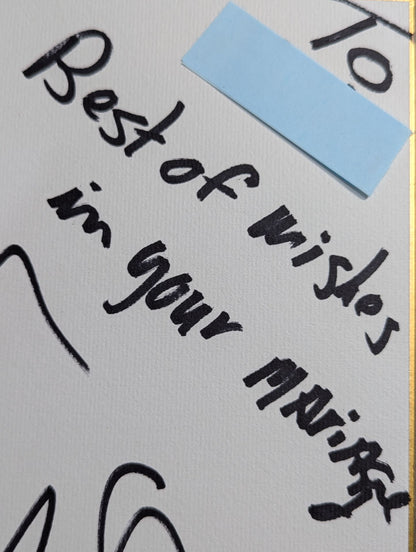 To
Best of wishes
in your MARiAGE